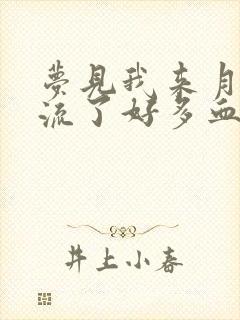 夢見我来月
流了好多血
井上小春